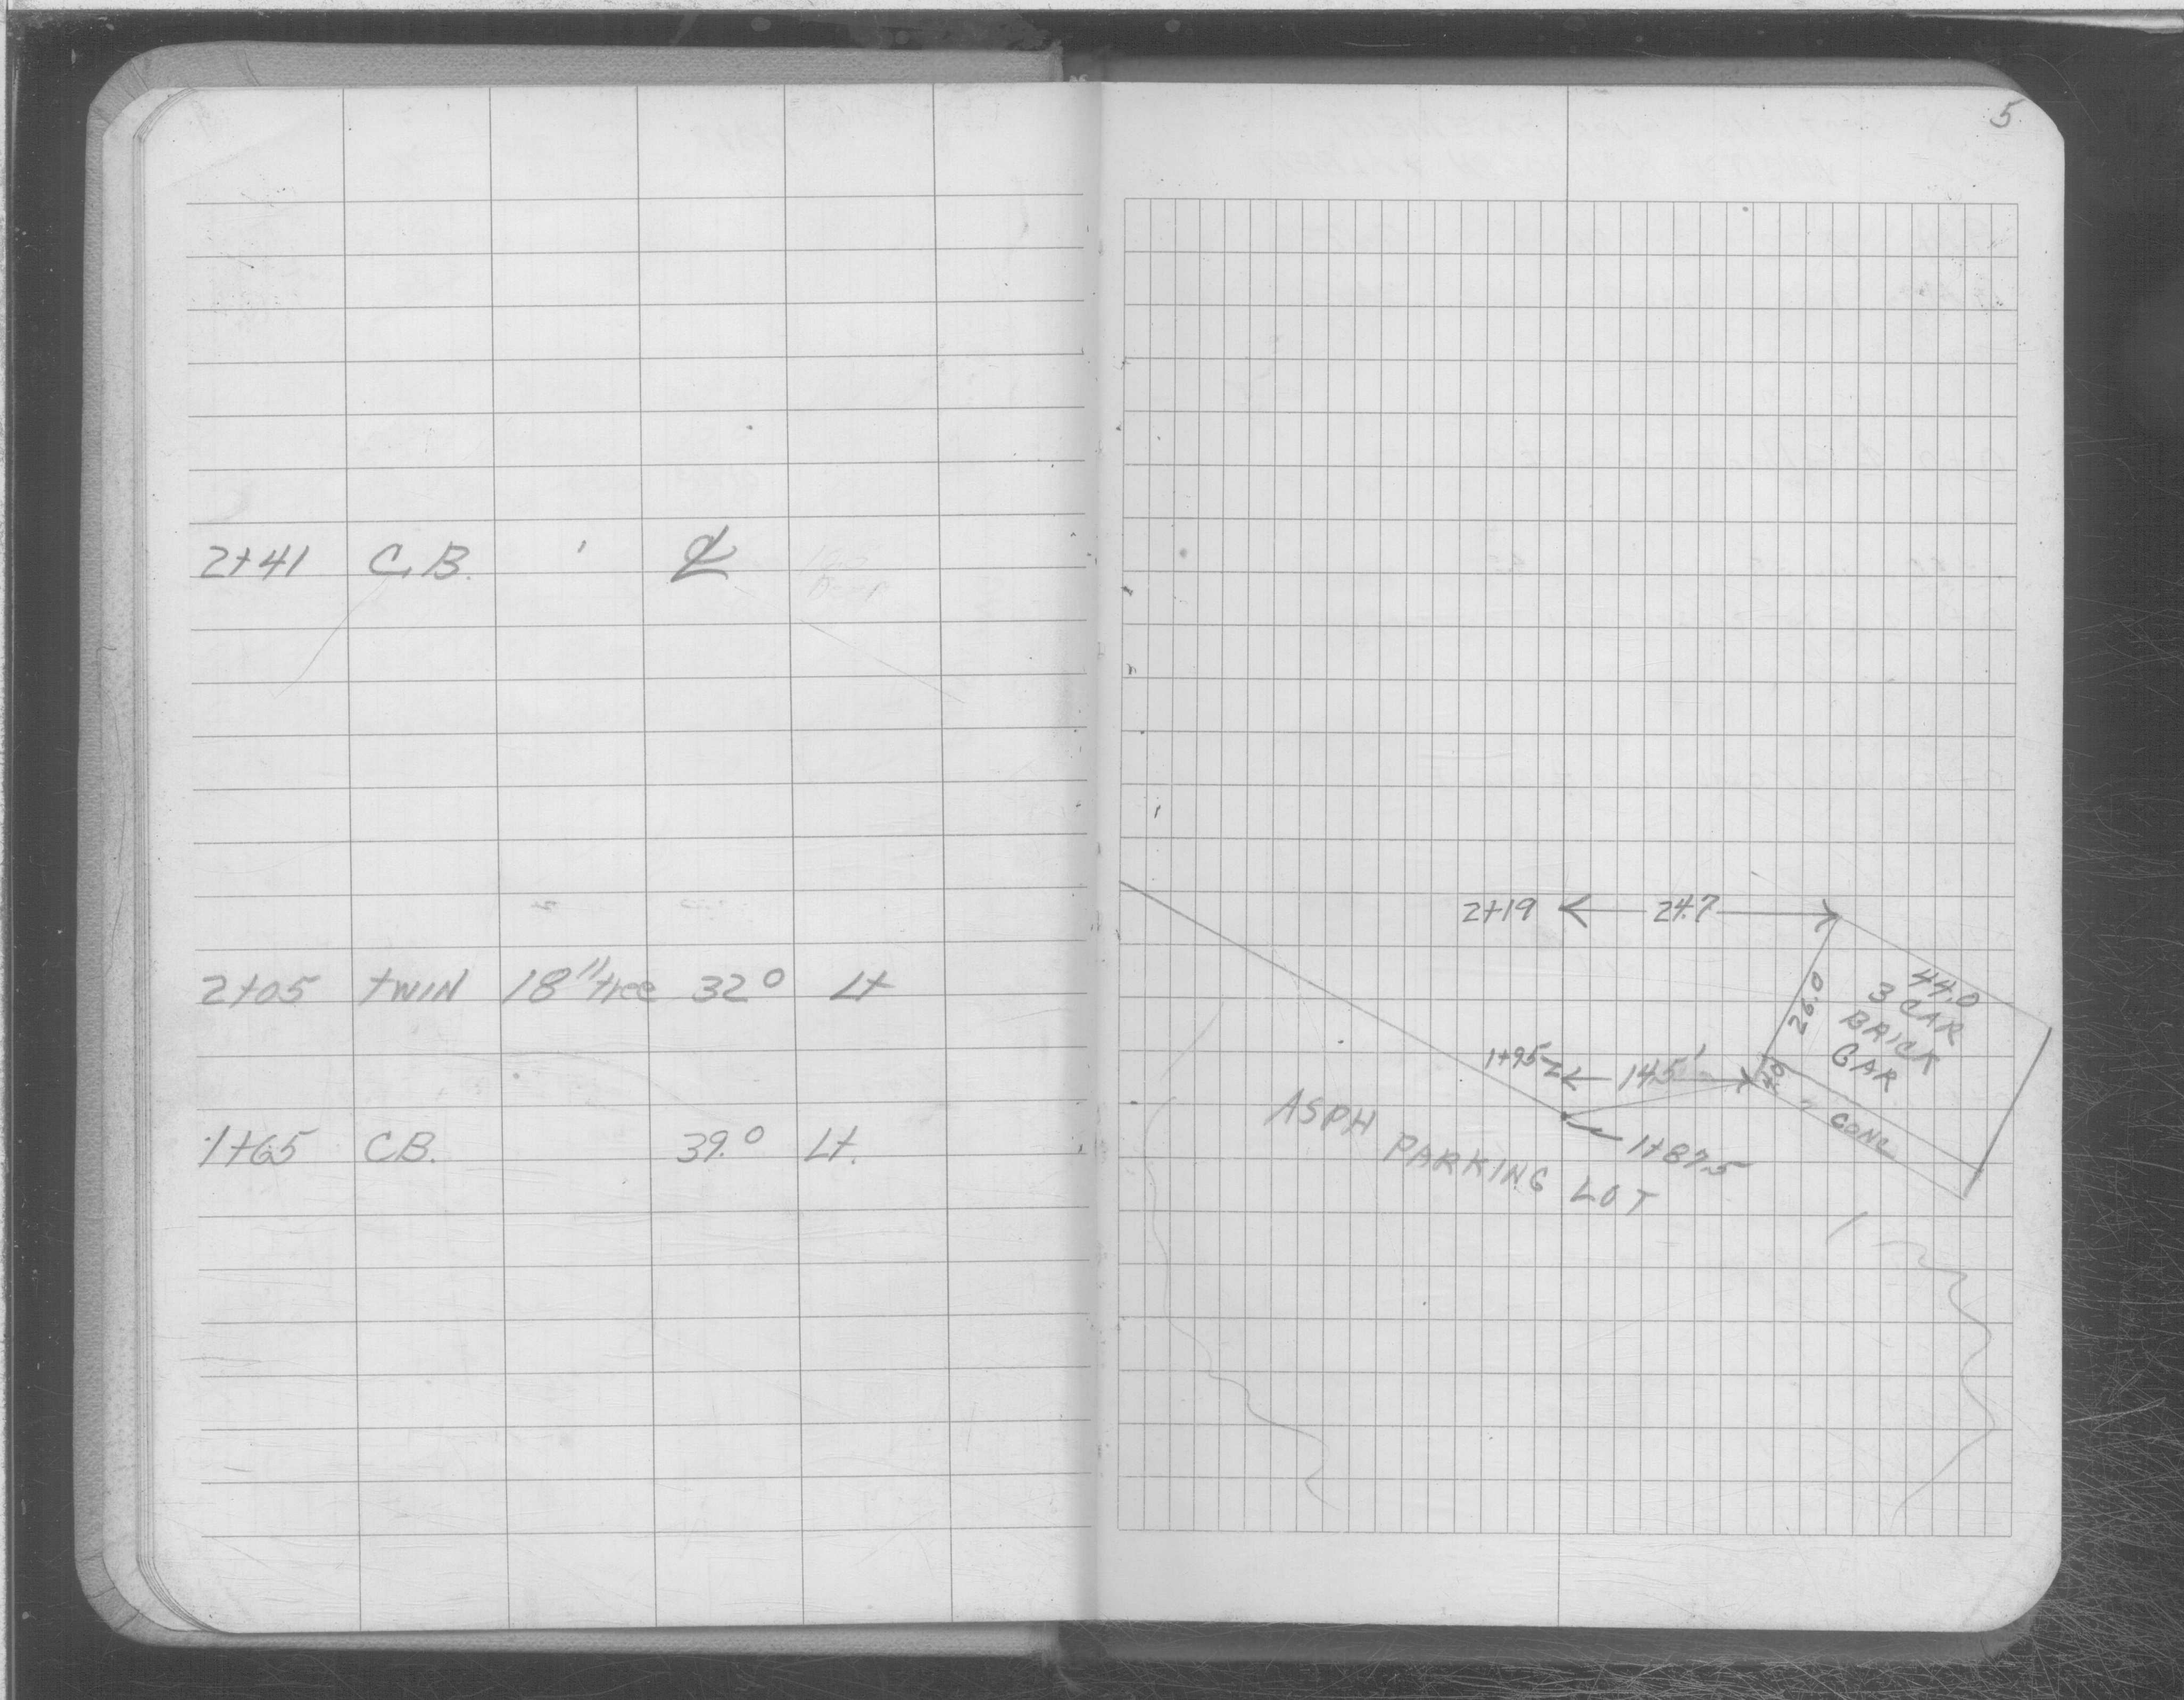 5
2+41 C.B. ℄
2+05 twin 18" tree 32° Lt
1+65 CB. 39.° Lt.
2+19 24.7
44.0
3 CAR
BRICK
GAR
26.0
1+95 14.5'
CONC
1+87.5
ASPH
PARKING LOT